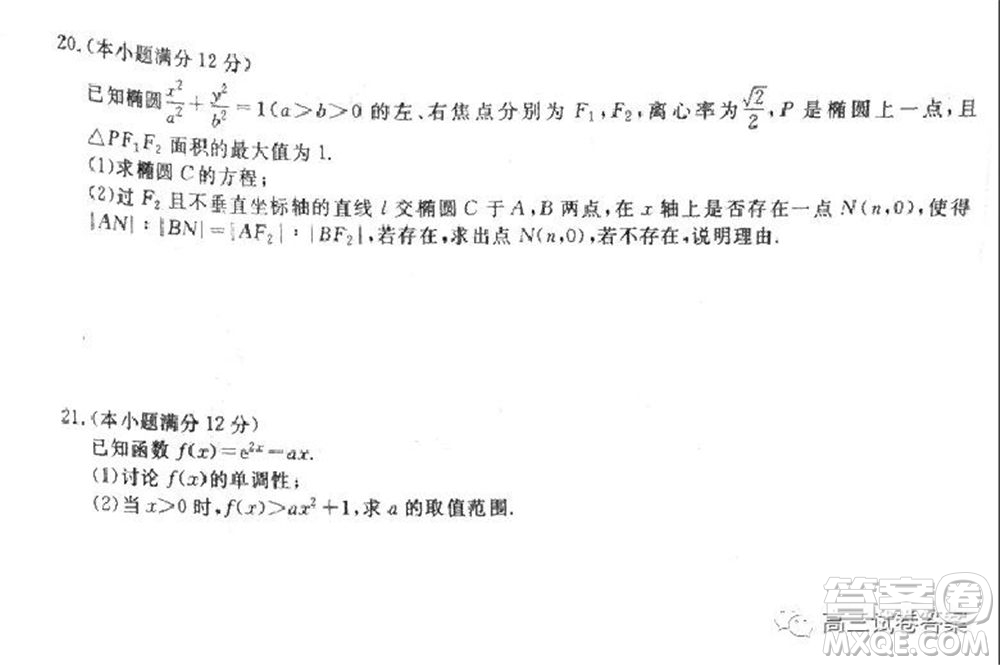 20.(本小题满分12分)
已知椭圆x²/a²+y²/b²=1(a>b>0的左、右焦点分别为F₁,F₂,离心率为√2/2,P是椭圆上一点,且
△PF₁F₂面积的最大值为1.
(1)求椭圆C的方程;
(2)过F₂且不垂直坐标轴的直线l交椭圆C于A,B两点,在x轴上是否存在一点N(n,0),使得
|AN|:|BN|=|AF₂|:|BF₂|,若存在,求出点N(n,0),若不存在,说明理由.
21.(本小题满分12分)
已知函数f(x)=e²ˣ=ax.
(1)讨论f(x)的单调性;
(2)当x>0时,f(x)>ax²+1,求a的取值范围.
答案卷
高三试卷答案
MXQE.COM